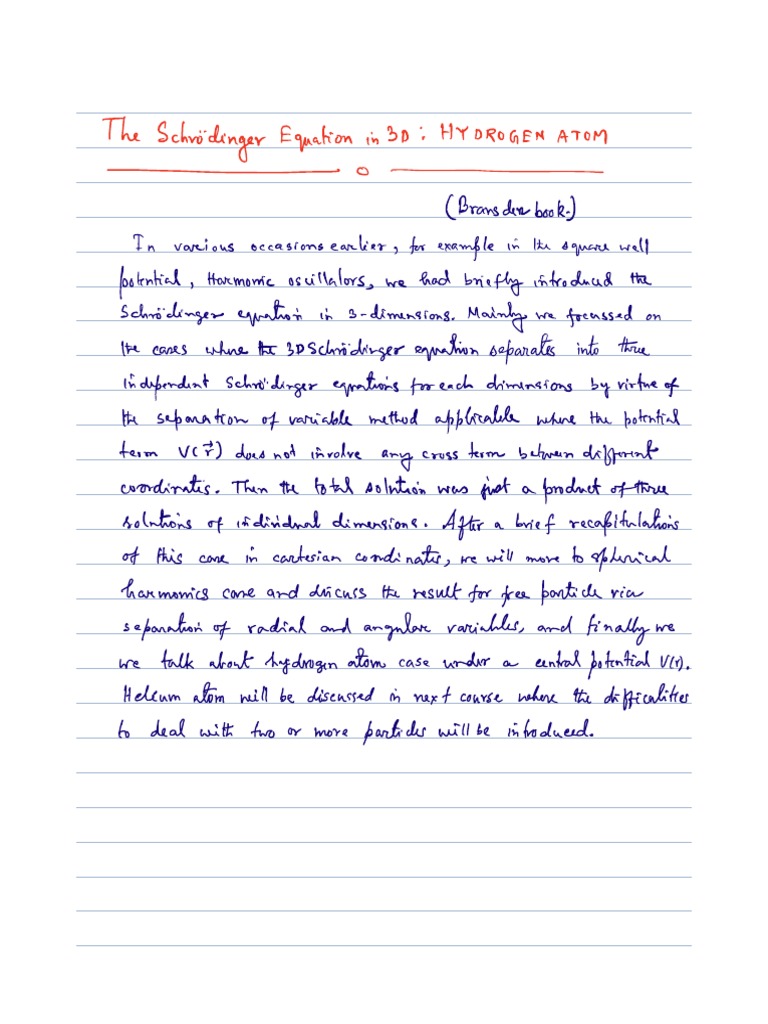 The Schrödinger Equation in 3D: HYDROGEN ATOM
(Bransden book.)
In various occasions earlier, for example in the square well
potential, Harmonic oscillators, we had briefly introduced the
Schrödinger equation in 3-dimensions. Mainly we focussed on
the cases where the 3D Schrödinger equation separates into three
independent Schrödinger equations for each dimensions by virtue of
the separation of variable method applicable where the potential
term V(r⃗) does not involve any cross term between different
coordinates. Then the total solution was just a product of three
solutions of individual dimensions. After a brief recapitulations
of this case in cartesian coordinates, we will move to spherical
harmonics case and discuss the result for free particle via
separation of radial and angular variables, and finally we
we talk about hydrogen atom case under a central potential V(r).
Heleum atom will be discussed in next course where the difficalities
to deal with two or more particles will be introduced.